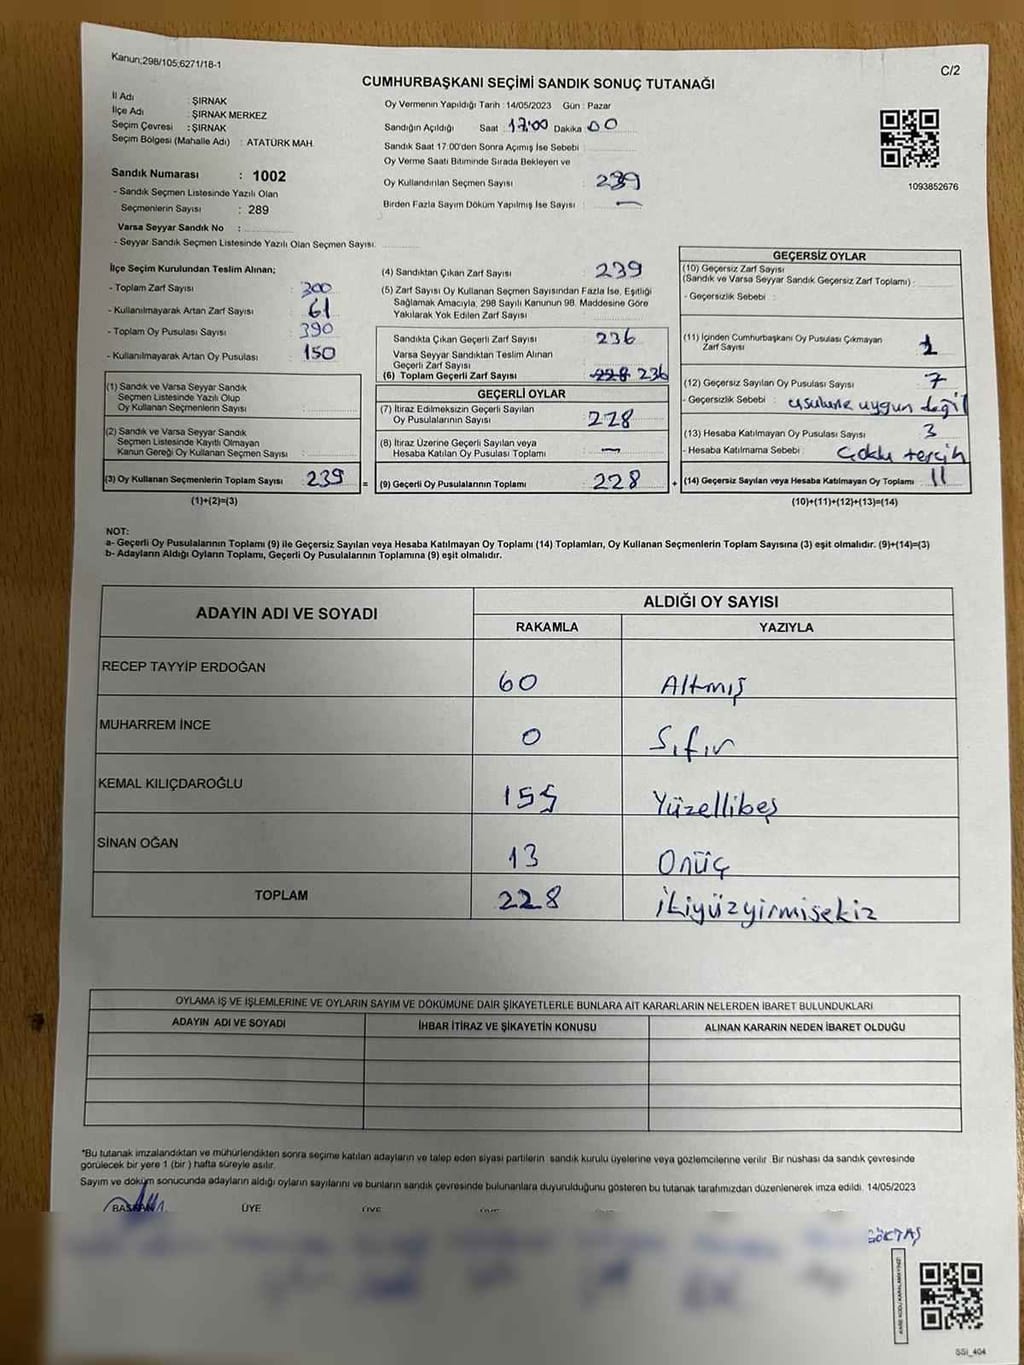 Kanun;298/105;6271/18-1
C/2
CUMHURBAŞKANI SEÇİMİ SANDIK SONUÇ TUTANAĞI
İl Adı : ŞIRNAK
İlçe Adı : ŞIRNAK MERKEZ
Seçim Çevresi : ŞIRNAK
Seçim Bölgesi (Mahalle Adı) : ATATÜRK MAH.
Sandık Numarası : 1002
- Sandık Seçmen Listesinde Yazılı Olan
Seçmenlerin Sayısı : 289
Varsa Seyyar Sandık No :
- Seyyar Sandık Seçmen Listesinde Yazılı Olan Seçmen Sayısı:
Oy Vermenin Yapıldığı Tarih : 14/05/2023 Gün : Pazar
Sandığın Açıldığı Saat : 17:00 Dakika : 00
Sandık Saat 17:00'den Sonra Açımış İse Sebebi :
Oy Verme Saati Bitiminde Sırada Bekleyen ve
Oy Kullandırılan Seçmen Sayısı : 239
Birden Fazla Sayım Döküm Yapılmış İse Sayısı : —
1093852676
İlçe Seçim Kurulundan Teslim Alınan;
- Toplam Zarf Sayısı : 300
- Kullanılmayarak Artan Zarf Sayısı : 61
- Toplam Oy Pusulası Sayısı : 390
- Kullanılmayarak Artan Oy Pusulası : 150
(1) Sandık ve Varsa Seyyar Sandık
Seçmen Listesinde Yazılı Olup
Oy Kullanan Seçmenlerin Sayısı :
(2) Sandık ve Varsa Seyyar Sandık
Seçmen Listesinde Kayıtlı Olmayan
Kanun Gereği Oy Kullanan Seçmen Sayısı :
(3) Oy Kullanan Seçmenlerin Toplam Sayısı : 239 =
(1)+(2)=(3)
(4) Sandıktan Çıkan Zarf Sayısı : 239
(5) Zarf Sayısı Oy Kullanan Seçmen Sayısından Fazla İse, Eşitliği
Sağlamak Amacıyla, 298 Sayılı Kanunun 98. Maddesine Göre
Yakılarak Yok Edilen Zarf Sayısı :
Sandıkta Çıkan Geçerli Zarf Sayısı : 236
Varsa Seyyar Sandıktan Teslim Alınan
Geçerli Zarf Sayısı :
(6) Toplam Geçerli Zarf Sayısı : 228 236
GEÇERLİ OYLAR
(7) İtiraz Edilmeksizin Geçerli Sayılan
Oy Pusulalarının Sayısı : 228
(8) İtiraz Üzerine Geçerli Sayılan veya
Hesaba Katılan Oy Pusulası Toplamı : —
(9) Geçerli Oy Pusulalarının Toplamı : 228 +
GEÇERSİZ OYLAR
(10) Geçersiz Zarf Sayısı
(Sandık ve Varsa Seyyar Sandık Geçersiz Zarf Toplamı) :
- Geçersizlik Sebebi :
(11) İçinden Cumhurbaşkanı Oy Pusulası Çıkmayan
Zarf Sayısı : 1
(12) Geçersiz Sayılan Oy Pusulası Sayısı : 7
- Geçersizlik Sebebi : usulune uygun değil
(13) Hesaba Katılmayan Oy Pusulası Sayısı : 3
- Hesaba Katılmama Sebebi : Çoklu tercih
(14) Geçersiz Sayılan veya Hesaba Katılmayan Oy Toplamı : 11
(10)+(11)+(12)+(13)=(14)
NOT:
a- Geçerli Oy Pusulalarının Toplamı (9) ile Geçersiz Sayılan veya Hesaba Katılmayan Oy Toplamı (14) Toplamları, Oy Kullanan Seçmenlerin Toplam Sayısına (3) eşit olmalıdır. (9)+(14)=(3)
b- Adayların Aldığı Oyların Toplamı, Geçerli Oy Pusulalarının Toplamına (9) eşit olmalıdır.
ADAYIN ADI VE SOYADI
ALDIĞI OY SAYISI
RAKAMLA YAZIYLA
RECEP TAYYİP ERDOĞAN 60 Altmış
MUHARREM İNCE 0 Sıfır
KEMAL KILIÇDAROĞLU 155 Yüzellibeş
SİNAN OĞAN 13 Onüç
TOPLAM 228 ikiyüzyirmisekiz
OYLAMA İŞ VE İŞLEMLERİNE VE OYLARIN SAYIM VE DÖKÜMÜNE DAİR ŞİKAYETLERLE BUNLARA AİT KARARLARIN NELERDEN İBARET BULUNDUKLARI
ADAYIN ADI VE SOYADI İHBAR İTİRAZ VE ŞİKAYETİN KONUSU ALINAN KARARIN NEDEN İBARET OLDUĞU
*Bu tutanak imzalandıktan ve mühürlendikten sonra seçime katılan adayların ve talep eden siyasi partilerin sandık kurulu üyelerine veya gözlemcilerine verilir .Bir nüshası da sandık çevresinde
görülecek bir yere 1 (bir ) hafta süreyle asılır.
Sayım ve döküm sonucunda adayların aldığı oyların sayılarını ve bunların sandık çevresinde bulunanlara duyurulduğunu gösteren bu tutanak tarafımızdan düzenlenerek imza edildi. 14/05/2023
BAŞKAN ÜYE ÜYE
GÖKTAŞ
SSI_404